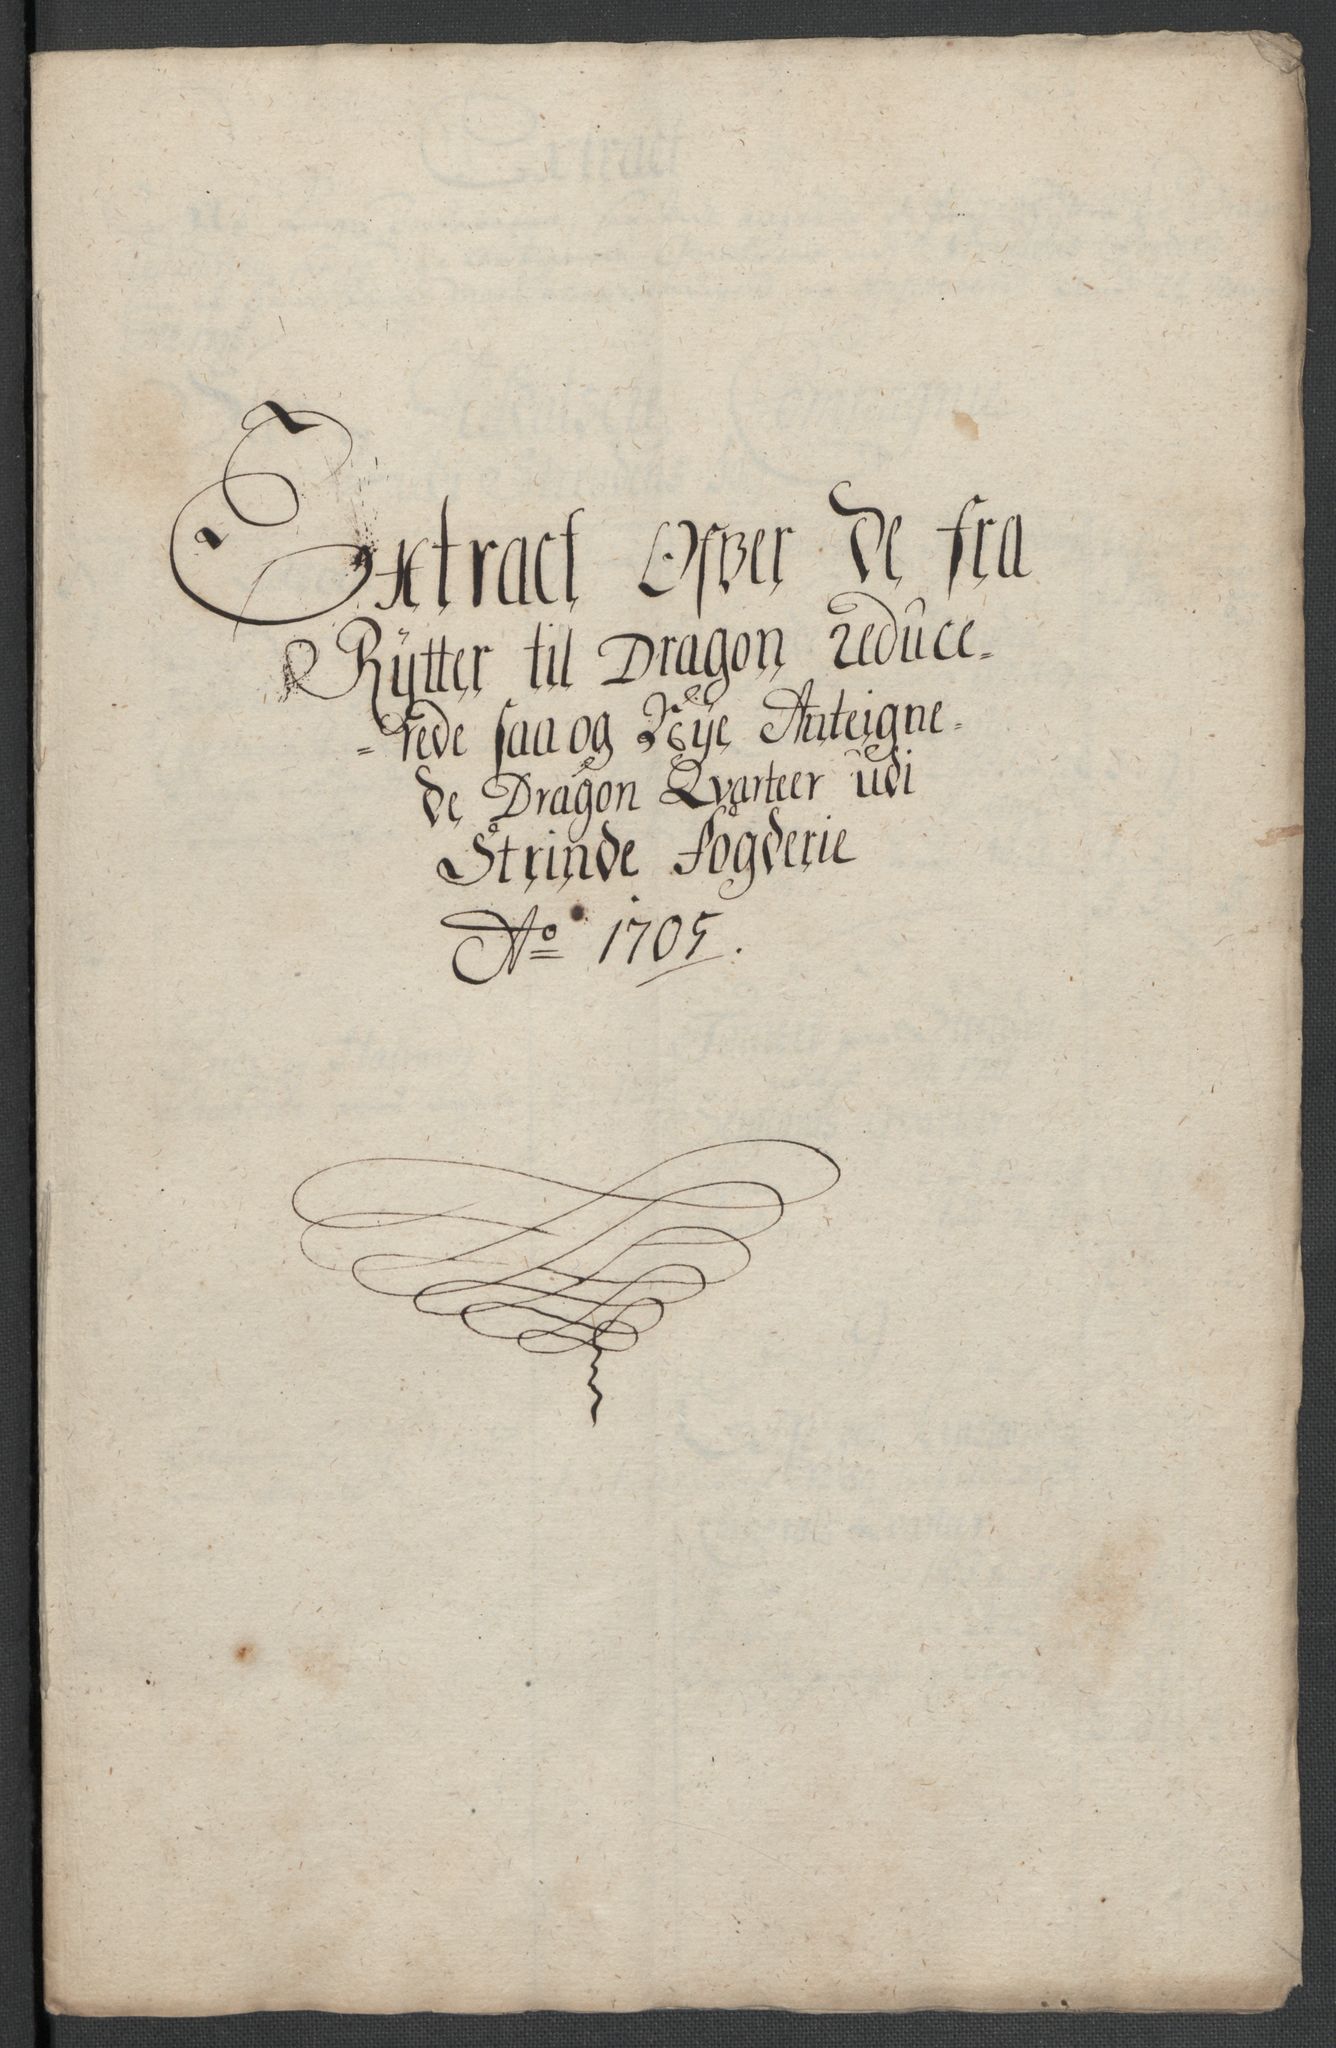 Extract Ofver de fra
Rÿtter til Dragon reduce-
=rede saa og Nÿe Anteigne-
de Dragon Qvarteer udi
Strinde fogderie
Ao 1705.